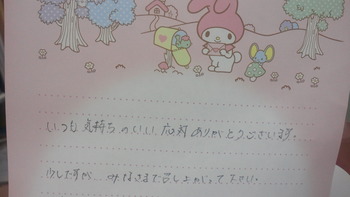 いつも気持ちのいい応対ありがとうございます。
少しですが…みなさまで召し上がって下さい。